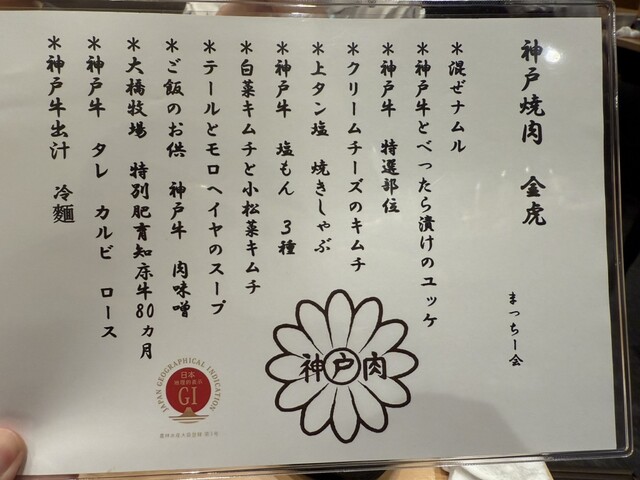 神戸焼肉 金虎
まっちー会
＊混ぜナムル
＊神戸牛とべったら漬けのユッケ
＊神戸牛 特選部位
＊クリームチーズのキムチ
＊上タン塩 焼きしゃぶ
＊神戸牛 塩もん 3種
＊白菜キムチと小松菜キムチ
＊テールとモロヘイヤのスープ
＊ご飯のお供 神戸牛 肉味噌
＊大橋牧場 特別肥育知床牛80ヵ月
＊神戸牛 タレ カルビ ロース
＊神戸牛出汁 冷麺
神戸肉
JAPAN GEOGRAPHICAL INDICATION
日本
地理的表示
GI
農林水産大臣登録 第3号